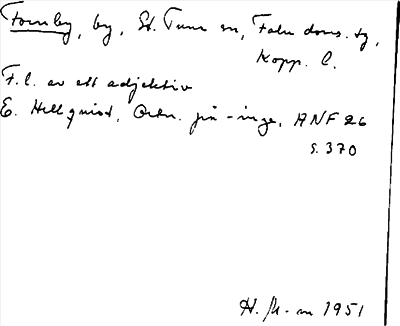 Fornby, by, St. Tuna sn, Falu doms. tg,
Kopp. l.
F.l. av ett adjektiv
E. Hellquist, Ortn. på -inge, ANF 26
s. 370
1951